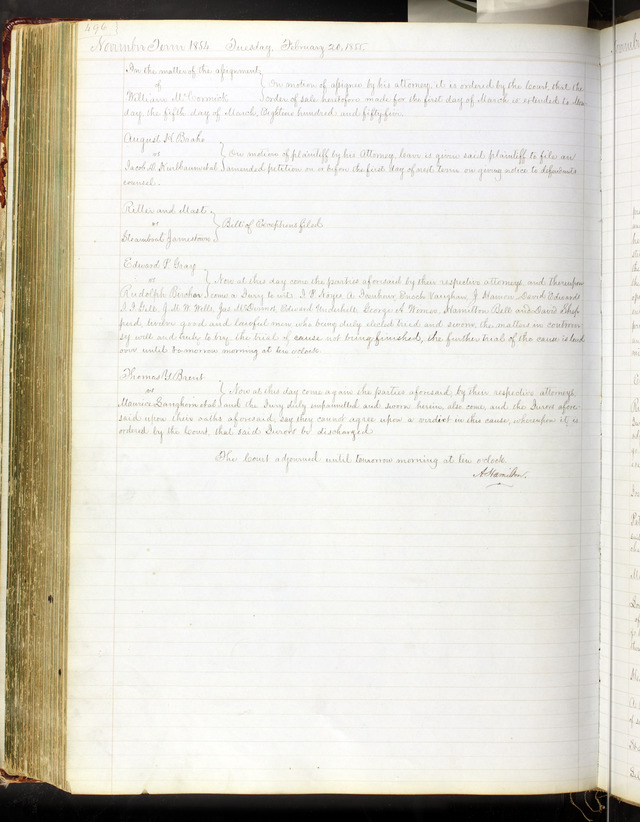 496
November Term 1854 Tuesday, February 20, 1855
In the matter of the assignment
of
William McCormick
On motion of assignee by his attorney, it is ordered by the Court, that the
order of sale heretofore made for the first day of March is extended to Mon
day, the fifth day of March, Eighteen hundred and fifty five
August H. Brake
vs
Jacob S. et al
On motion of plaintiff by his Attorney leave is given said plaintiff to file an
amended petition on or before the first day of next term on giving notice to defendants
counsel.
Ritter and Mast
vs
Steamboat Jamestown
Bill of Exceptions filed
Edward P. Gray
vs
Rudolph Bircher
Now at this day come the parties aforesaid by their respective attorneys, and thereupon
come a Jury to wit: I. F. A. Enoch Vaughan, J. David Edwards
J. M. W. Wills, Jas. McDermot, Edward Underhill, George A. Hamilton Bell and David Shep
perd, twelve good and lawful men who being duly elected tried and sworn, the matters in controver
sy well and truly to try, the trial of cause not being finished, the further trial of the cause is laid
over until tomorrow morning at ten o'clock.
Thomas Y. Brent
vs
Maurice Langhorn et al
Now at this day come again the parties aforesaid by their respective attorneys
and the Jury duly impannelled and sworn herein, also come, and the Jurors afore
said upon their oaths aforesaid say they cannot agree upon a verdict in this cause, whereupon it is
ordered by the Court, that said Jurors be discharged
The Court adjourned until tomorrow morning at ten o'clock
A. Hamilton.